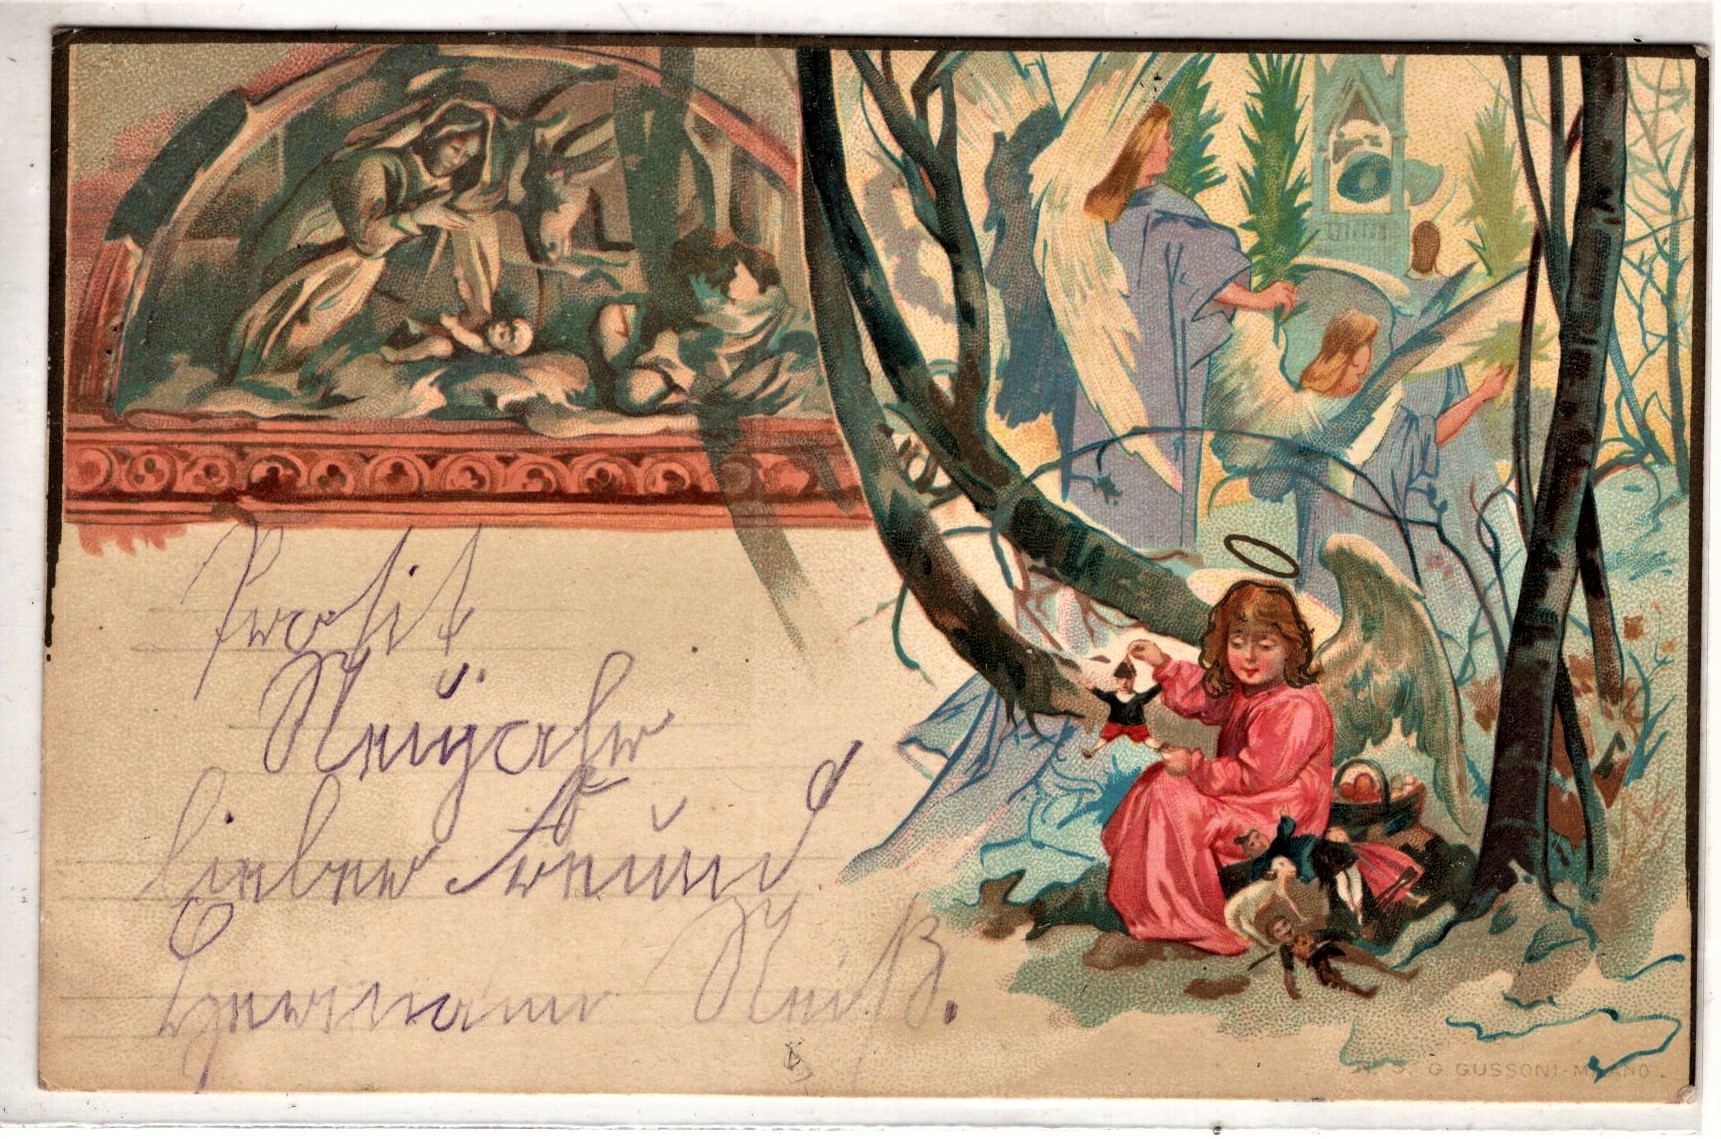 Prosit
Neujahr
lieber Freund
Hermann Neiß.
G GUSSONI-MILANO.